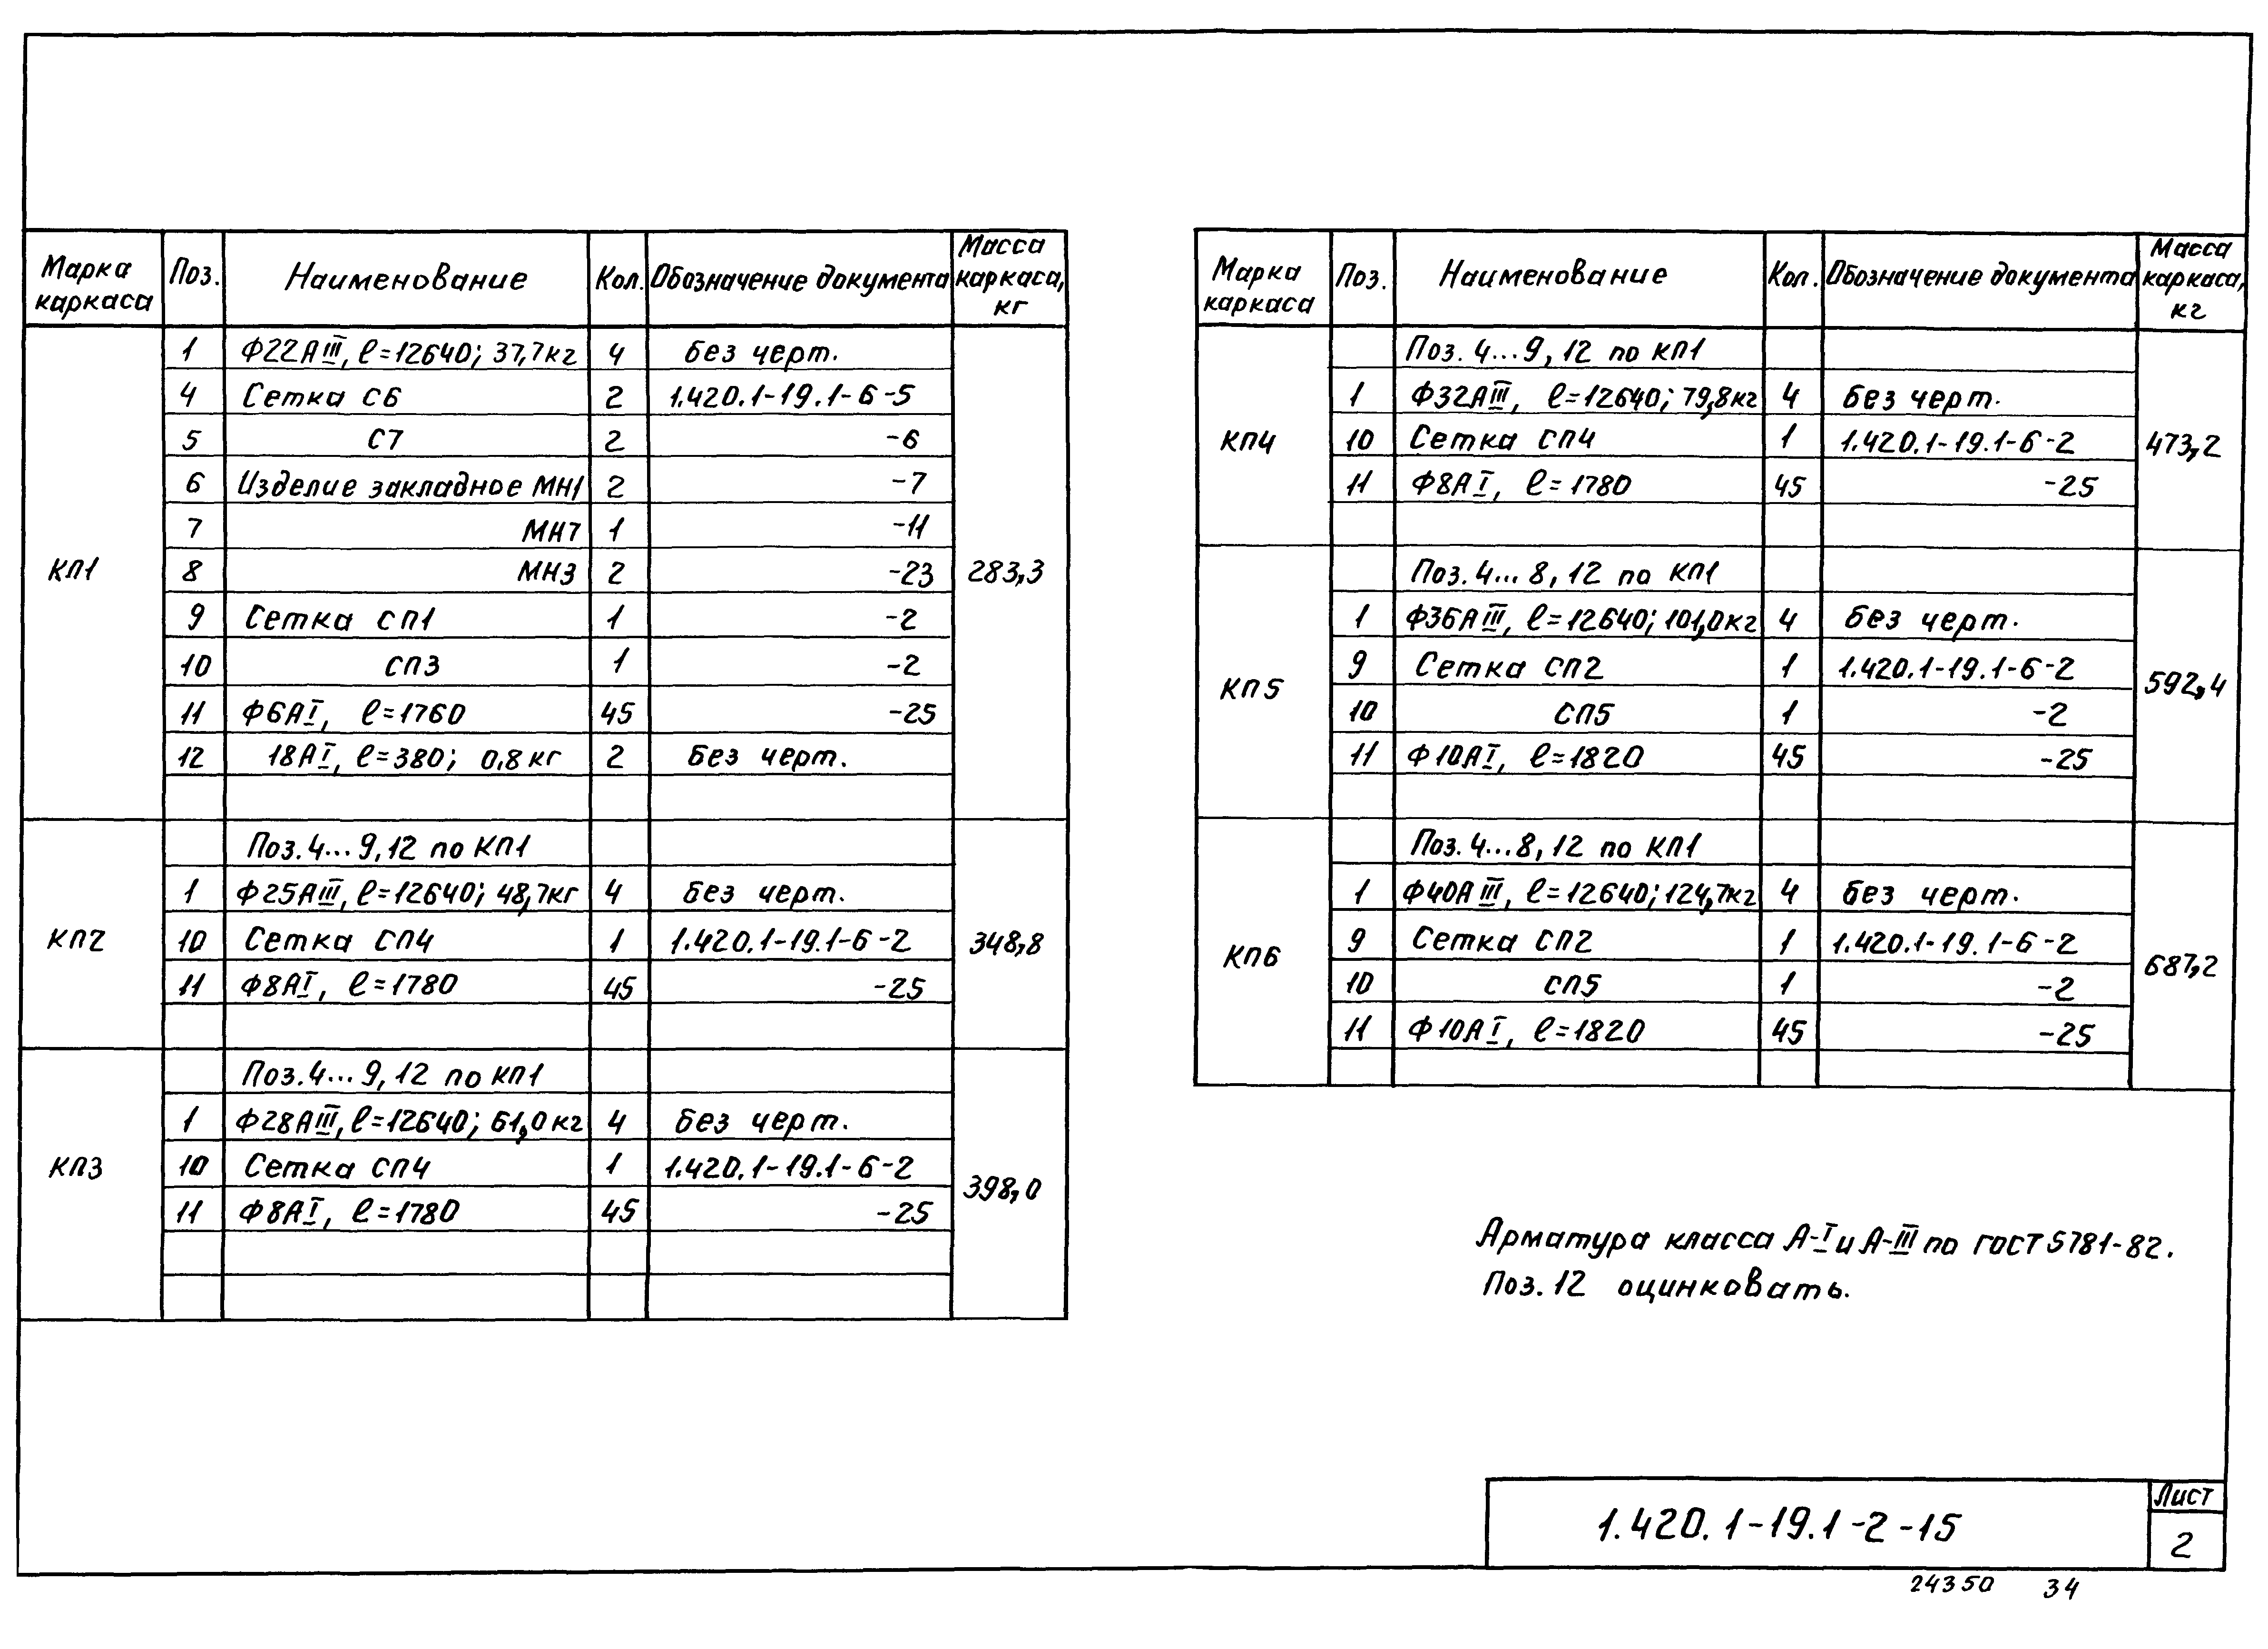 Марка каркаса Поз. Наименование Кол. Обозначение документа Масса каркаса, кг
КП1 283,3
1 Ф22АIII, ℓ=12640; 37,7кг 4 Без черт.
4 Сетка С6 2 1.420.1-19.1-6-5
5 С7 2 -6
6 Изделие закладное МН1 2 -7
7 МН7 1 -11
8 МН3 2 -23
9 Сетка СП1 1 -2
10 СП3 1 -2
11 Ф6АI, ℓ=1760 45 -25
12 18АI, ℓ=380; 0,8кг 2 Без черт.
КП2 348,8
Поз.4...9,12 по КП1
1 Ф25АIII, ℓ=12640; 48,7кг 4 Без черт.
10 Сетка СП4 1 1.420.1-19.1-6-2
11 Ф8АI, ℓ=1780 45 -25
КП3 398,0
Поз.4...9,12 по КП1
1 Ф28АIII, ℓ=12640; 61,0кг 4 Без черт.
10 Сетка СП4 1 1.420.1-19.1-6-2
11 Ф8АI, ℓ=1780 45 -25
Марка каркаса Поз. Наименование Кол. Обозначение документа Масса каркаса, кг
КП4 473,2
Поз. 4...9, 12 по КП1
1 Ф32АIII, ℓ=12640; 79,8кг 4 Без черт.
10 Сетка СП4 1 1.420.1-19.1-6-2
11 Ф8АI, ℓ=1780 45 -25
КП5 592,4
Поз.4...8,12 по КП1
1 Ф36АIII, ℓ=12640; 101,0кг 4 Без черт.
9 Сетка СП2 1 1.420.1-19.1-6-2
10 СП5 1 -2
11 Ф10АI, ℓ=1820 45 -25
КП6 687,2
Поз.4...8,12 по КП1
1 Ф40АIII, ℓ=12640; 124,7кг 4 Без черт.
9 Сетка СП2 1 1.420.1-19.1-6-2
10 СП5 1 -2
11 Ф10АI, ℓ=1820 45 -25
Арматура класса А-I и А-III по ГОСТ 5781-82.
Поз.12 оцинковать.
1.420.1-19.1-2-15
Лист
2
24350 34